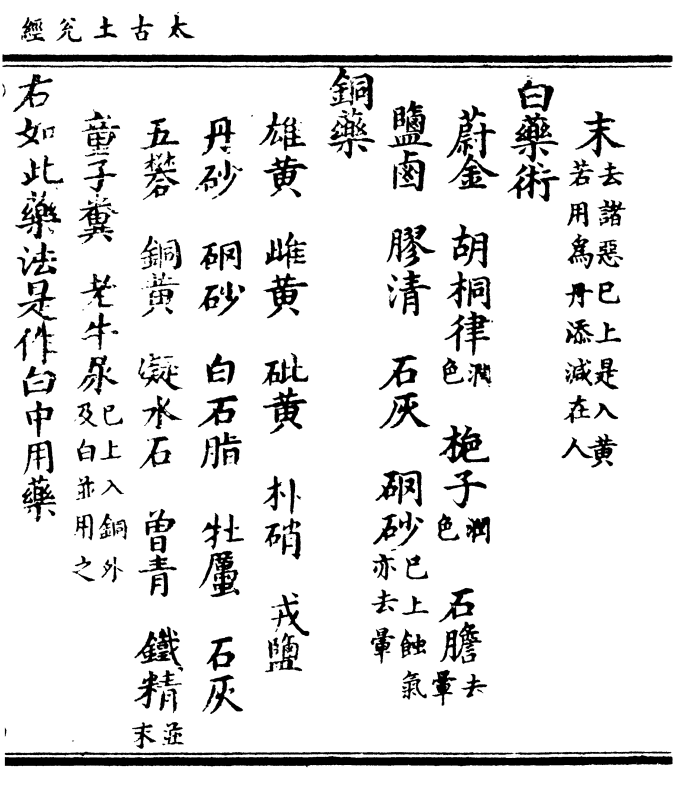 太古土兊經
末去諸惡已上是入黃若用爲丹添減在人
白藥術
蔚金 胡桐律潤色 梔子潤色 石膽去暈
鹽鹵 膠清 石灰 硇砂已上蝕氣亦去暈
銅藥
雄黃 雌黃 砒黃 朴硝 戎鹽
丹砂 硇砂 白石脂 牡厲 石灰
五礬 銅黃 凝水石 曾青 鐵精並末
童子糞 老牛尿已上入銅外及白並用之
右如此藥法是作白中用藥